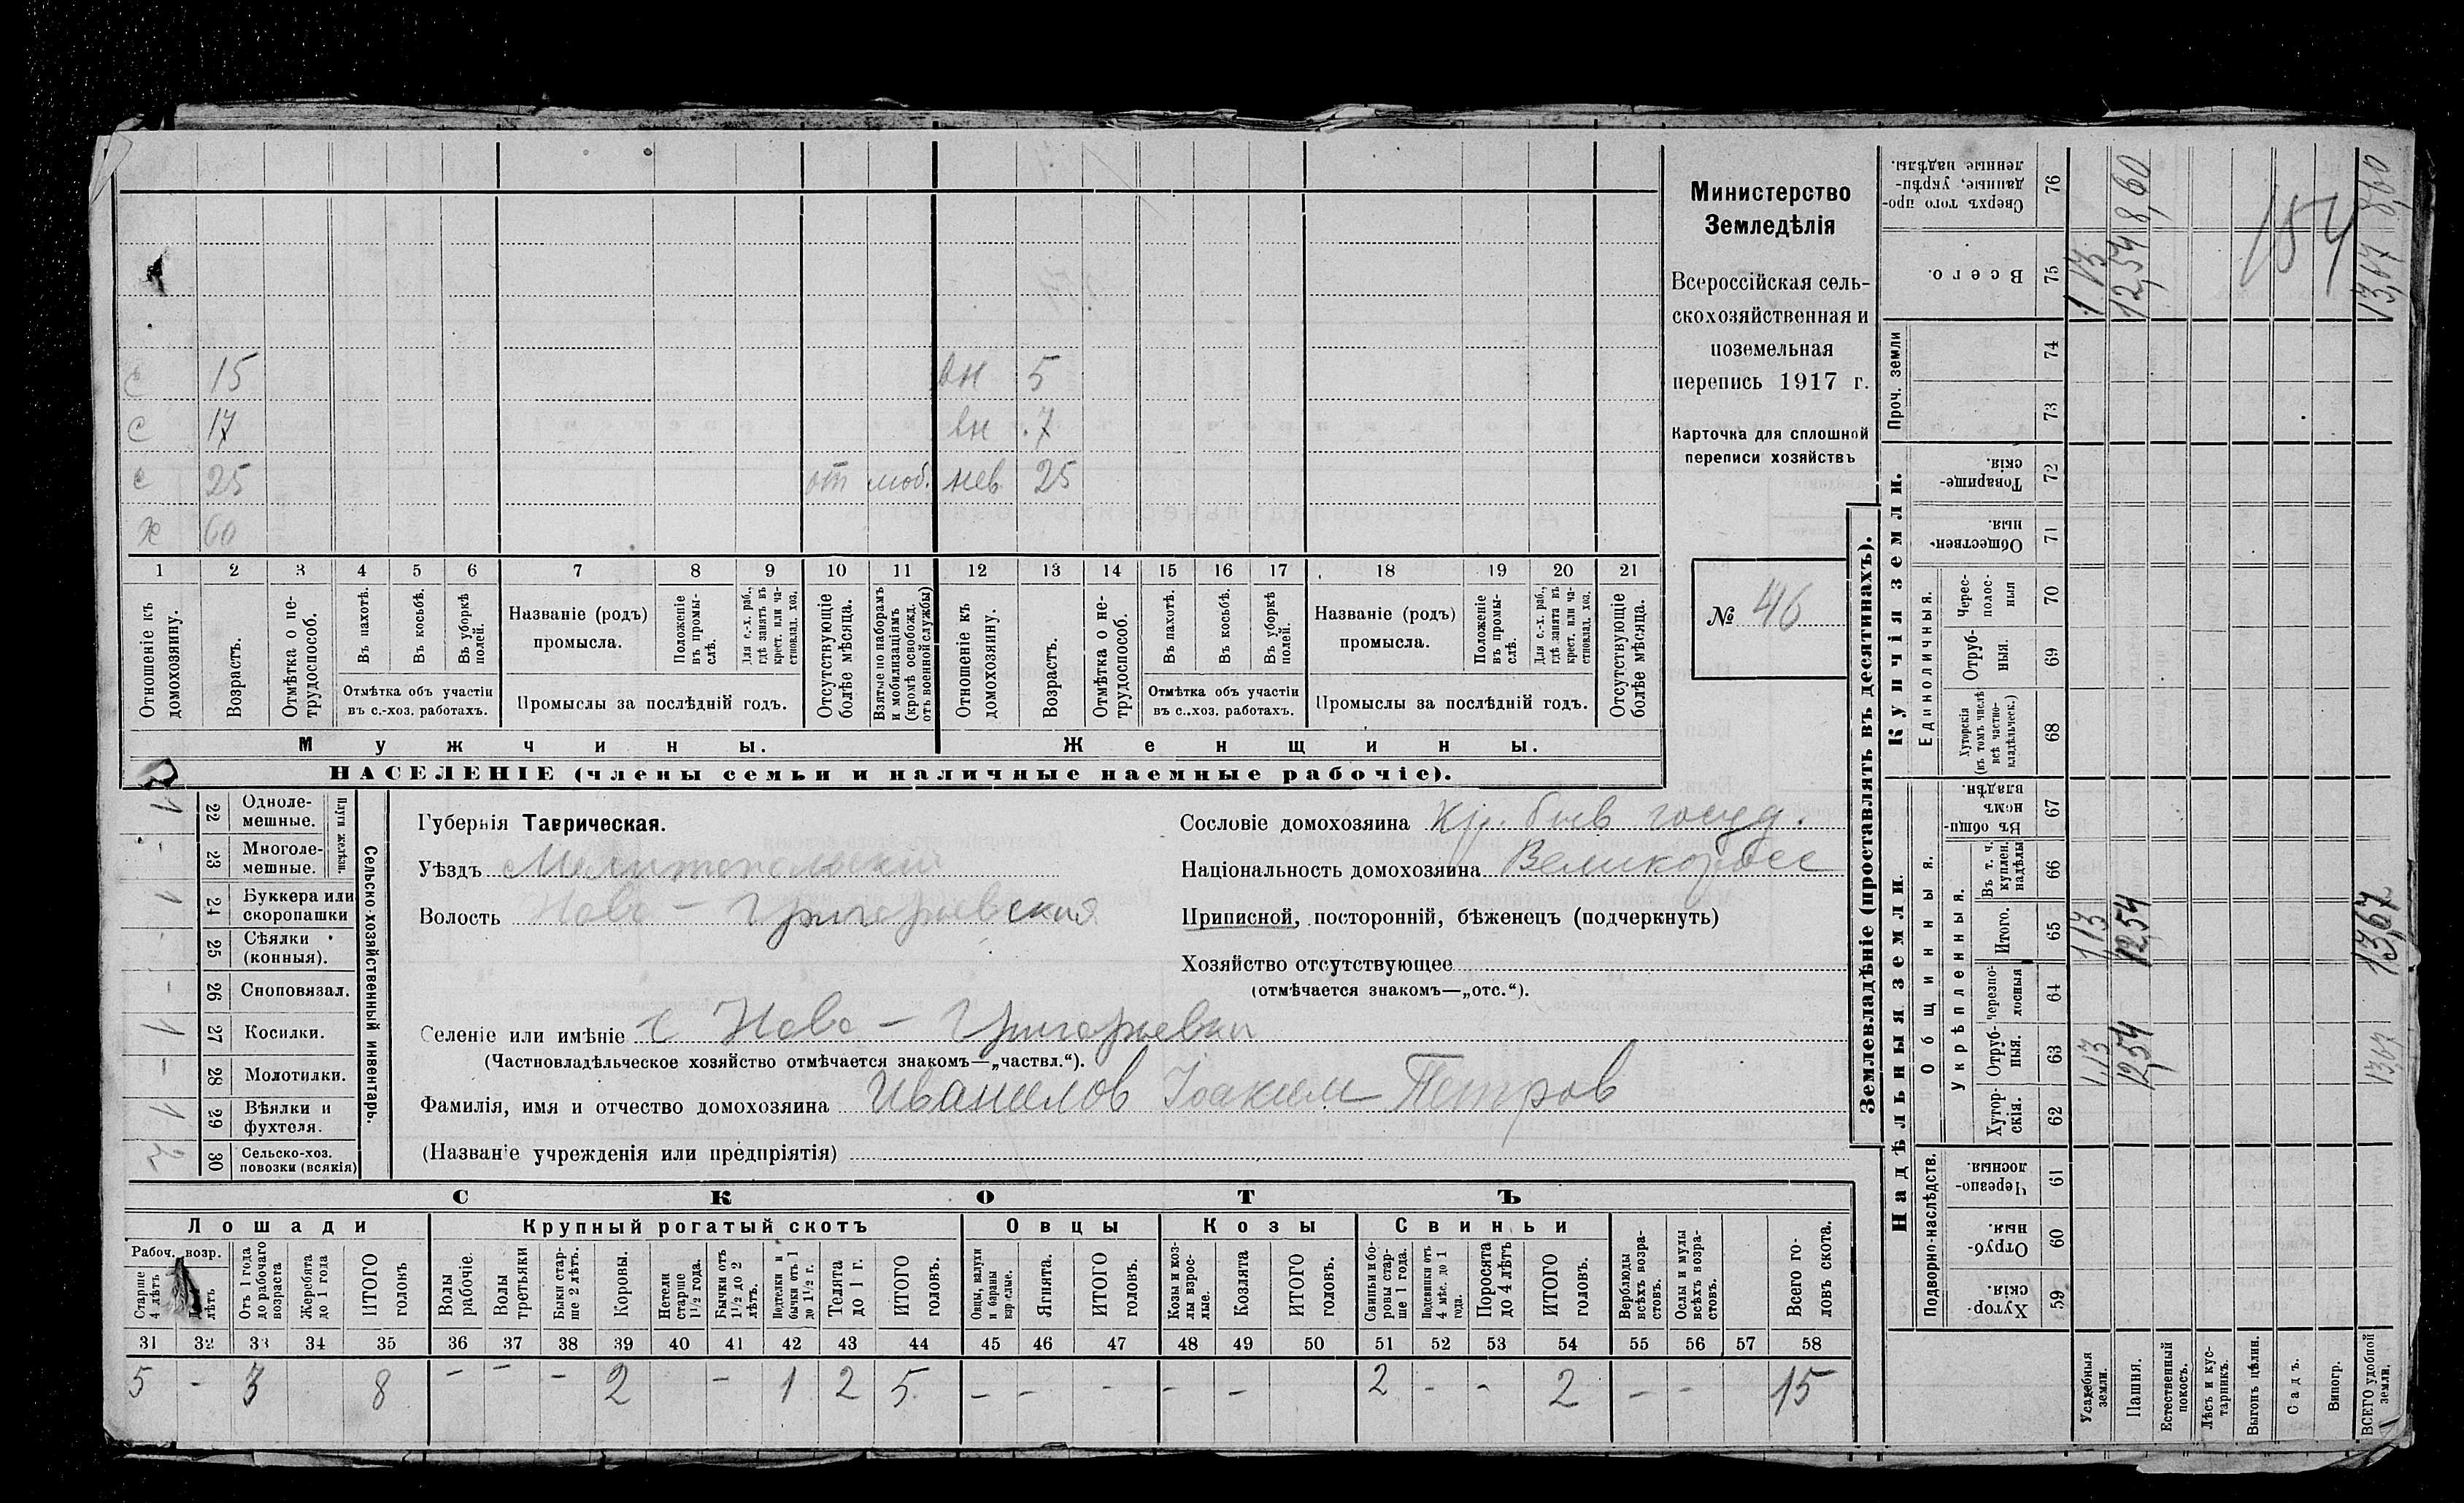 Министерство
Земледѣлія
Всероссійская сель-
скохозяйственная и
поземельная
перепись 1917 г.
Карточка для сплошной
переписи хозяйствъ
№ 46
с 15 вн 5
с 17 вн 7
с 25 от моб. нев 25
х 60
1 2 3 4 5 6 7 8 9 10 11 12 13 14 15 16 17 18 19 20 21
Отношеніе къ домохозяину.
Возрастъ.
Отмѣтка о не-трудоспособ.
Въ пахотѣ.
Въ косьбѣ.
Въ уборкѣ полей.
Отмѣтка объ участіи
въ с.-хоз. работахъ.
Названіе (родъ)
промысла.
Положеніе въ промы-слѣ.
Для с.-х. раб., гдѣ занятъ въ крест. или ча-стновлад. хоз.
Промыслы за послѣдній годъ.
Отсутствующіе болѣе мѣсяца.
Взятые по наборамъ и мобилизаціямъ (кромѣ освобожд. отъ военной службы)
Отношеніе къ домохозяину.
Возрастъ.
Отмѣтка о не-трудоспособ.
Въ пахотѣ.
Въ косьбѣ.
Въ уборкѣ полей.
Отмѣтка объ участіи
въ с.-хоз. работахъ.
Названіе (родъ)
промысла.
Положеніе въ промы-слѣ.
Для с.-х. раб., гдѣ занята въ крест. или ча-стновлад. хоз.
Промыслы за послѣдній годъ.
Отсутствующіе болѣе мѣсяца.
Мужчины.
Женщины.
НАСЕЛЕНІЕ (члены семьи и наличные наемные рабочіе).
Сельско-хозяйственный инвентарь.
Плуги желѣзн.
1 22 Одноле-мешные.
- 23 Многоле-мешные.
1 24 Буккера или скоропашки
- 25 Сѣялки (конныя).
- 26 Сноповязал.
1 27 Косилки.
- 28 Молотилки.
1 29 Вѣялки и фухтеля.
2 30 Сельско-хоз. повозки (всякія)
Губернія Таврическая.
Уѣздъ Мелитопольскій
Волость Ново-Григорьевская
Селеніе или имѣніе с Ново-Григорьевка
(Частновладѣльческое хозяйство отмѣчается знакомъ—„частвл.“).
Фамилія, имя и отчество домохозяина Иванилов Іоаким Петров
(Названіе учрежденія или предпріятія)
Сословіе домохозяина кр. быв госуд.
Національность домохозяина Великоросс
Приписной, посторонній, бѣженецъ (подчеркнуть)
Хозяйство отсутствующее
(отмѣчается знакомъ—„отс.“).
СКОТЪ
Лошади Крупный рогатый скотъ Овцы Козы Свиньи
Рабоч. возр.
Старше 4 лѣтъ
лѣтъ
Отъ 1 года до рабочаго возраста
Жеребята до 1 года
ИТОГО головъ
Волы рабочіе.
Волы третьяки
Быки стар-ше 2 лѣтъ.
Коровы.
Нетели старше 1½ года.
Бычки отъ 1½ до 2 лѣтъ.
Подтелки и бычки отъ 1 до 1½ г.
Телята до 1 г.
ИТОГО головъ.
Овцы, валухи и бараны взрослые.
Ягнята.
ИТОГО головъ.
Козы и коз-лы взрос-лые.
Козлята
ИТОГО головъ.
Свиньи и бо-ровы стар-ше 1 года.
Подсвинки отъ 4 мѣс. до 1 года.
Поросята до 4 лѣтъ
ИТОГО головъ.
Верблюды всѣхъ возра-стовъ.
Ослы и мулы всѣхъ возра-стовъ.
Всего го-ловъ скота.
31 32 33 34 35 36 37 38 39 40 41 42 43 44 45 46 47 48 49 50 51 52 53 54 55 56 57 58
5 - 3 8 - - - 2 - 1 2 5 - - - - - 2 - - 2 - - 15
Землевладѣніе (проставлять въ десятинахъ).
Надѣльныя земли.
Подворно-наслѣдств.
Хутор-скія. 59
Отруб-ныя. 60
Черезпо-лосныя. 61
Общинныя.
Укрѣпленныя.
Хутор-скія. 62
Отруб-ныя. 63
черезпо-лосныя 64
Итого. 65
Въ т. ч. куплен. надѣлы 66
Въ общин-номъ владѣн. 67
Купчія земли.
Единоличныя.
Хуторскія (въ томъ числѣ всѣ частно-владѣльческ.) 68
Отруб-ныя. 69
Черес-полос-ныя 70
Обществен-ныя. 71
Товарище-скія. 72
Проч. земли
73 74
Всего. 75
Сверхъ того про-данные, укрѣп-ленные надѣлы. 76
Усадебныя земли. 1,13 1,13 1 13
Пашня. 12,54 12,54 12,54 8,60
Естественный покосъ.
Лѣсъ и кус-тарникъ.
Выгонъ цѣлин.
Садъ.
Виногр.
ВСЕГО удобной земли. 13,67 13,67 13,67 8,60
154